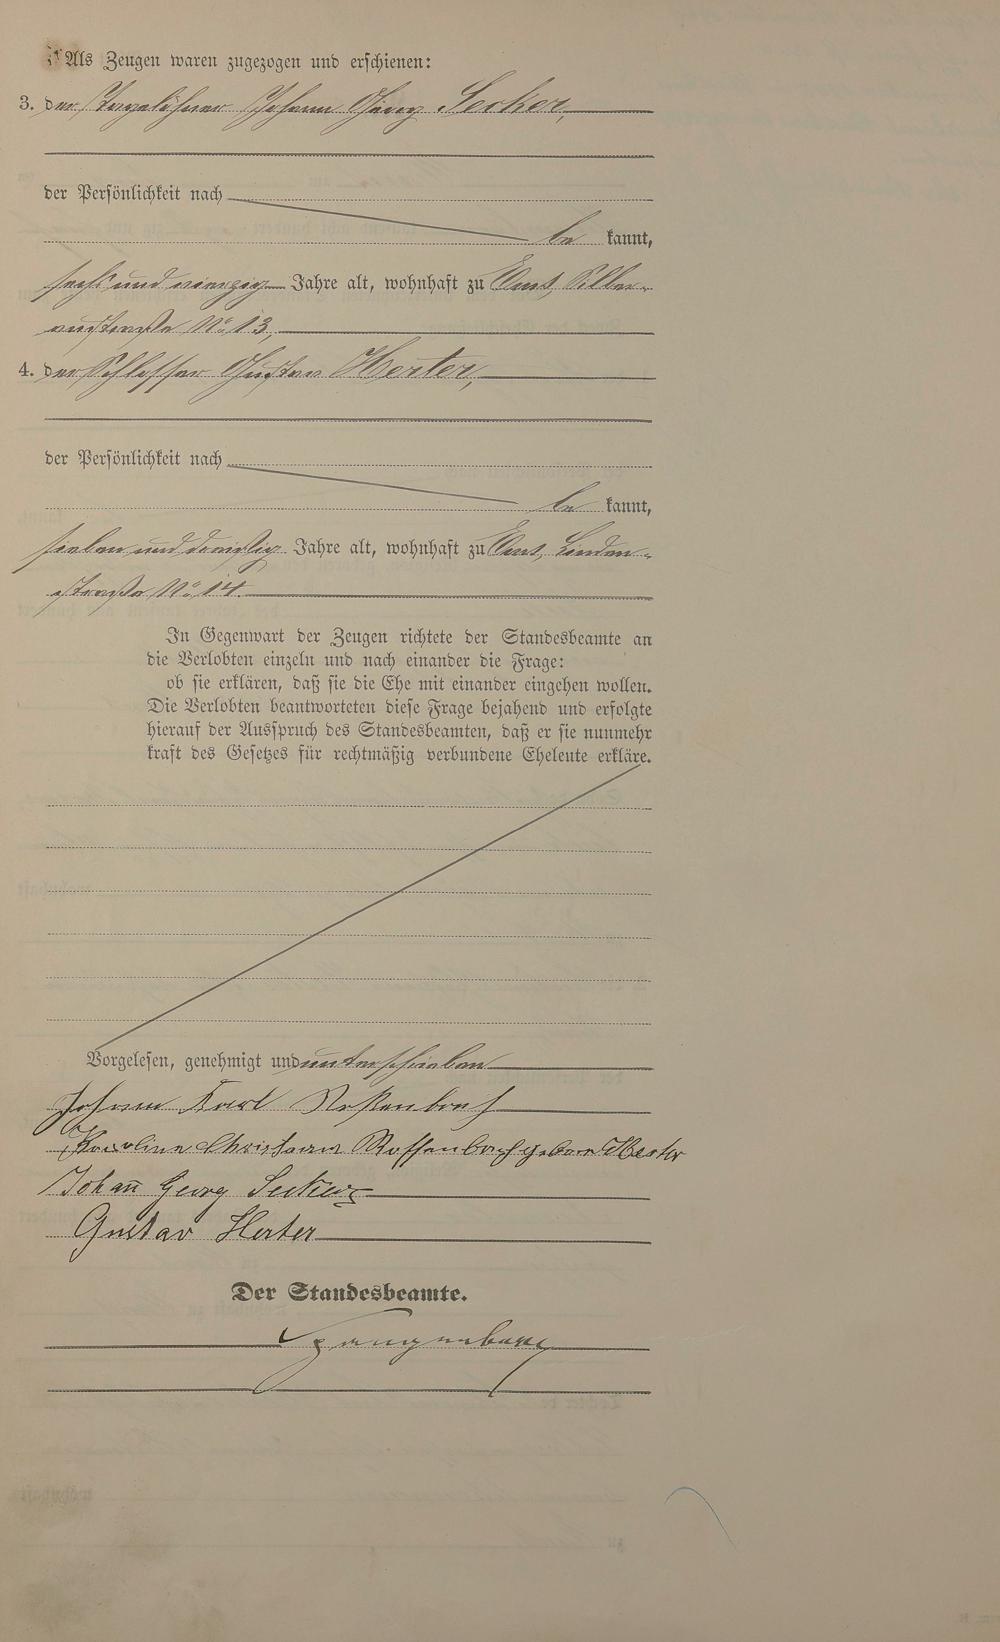 Als Zeugen waren zugezogen und erschienen:
3. der Tagelöhner Johann Georg Secker,
der Persönlichkeit nach
be kannt,
sechs und vierzig Jahre alt, wohnhaft zu Ems, Silber-
austraße No 13,
4. der Schlosser Gustav Herter,
der Persönlichkeit nach
be kannt,
sieben und dreißig Jahre alt, wohnhaft zu Ems, Linden-
straße No 14.
In Gegenwart der Zeugen richtete der Standesbeamte an
die Verlobten einzeln und nach einander die Frage:
ob sie erklären, daß sie die Ehe mit einander eingehen wollen.
Die Verlobten beantworteten diese Frage bejahend und erfolgte
hierauf der Ausspruch des Standesbeamten, daß er sie nunmehr
kraft des Gesetzes für rechtmäßig verbundene Eheleute erkläre.
Vorgelesen, genehmigt und unterschrieben
Johann Karl Roßenbach
Karoline Christiane Roffenbach geborn Herter
Johañ Georg Secker
Gustav Herter
Der Standesbeamte.